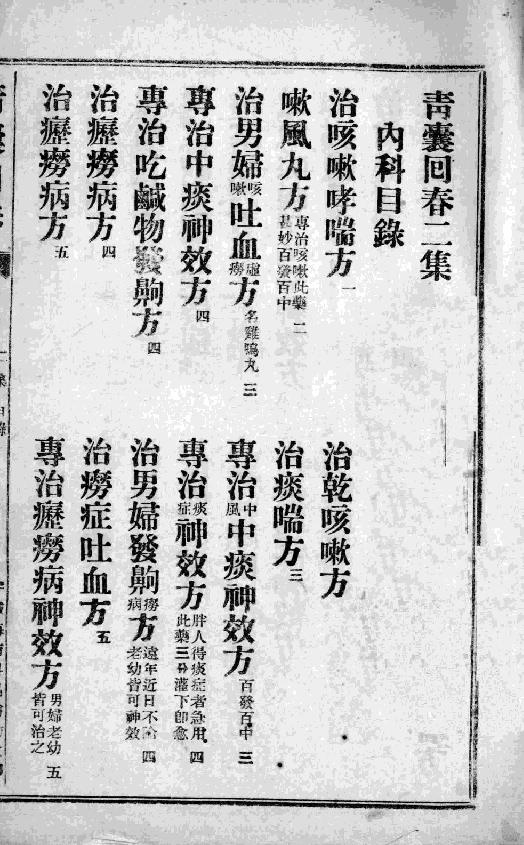 青囊回春二集
內科目錄
治咳嗽哮喘方 一
治乾咳嗽方
嗽風丸方 專治咳嗽此藥甚妙百發百中 二
治痰喘方 三
治男婦咳嗽吐血虛癆方 名雞鳴丸 三
專治中風中痰神效方 百發百中 三
專治中痰神效方 四
專治痰症神效方 胖人得痰症者急用此藥三分灌下即愈 四
專治吃鹹物發齁方 四
治男婦發齁癆病方 遠年近日不論老幼皆可神效 四
治癧癆病方 四
治癆症吐血方 五
治癧癆病方 五
專治癧癆病神效方 男婦老幼皆可治之 五